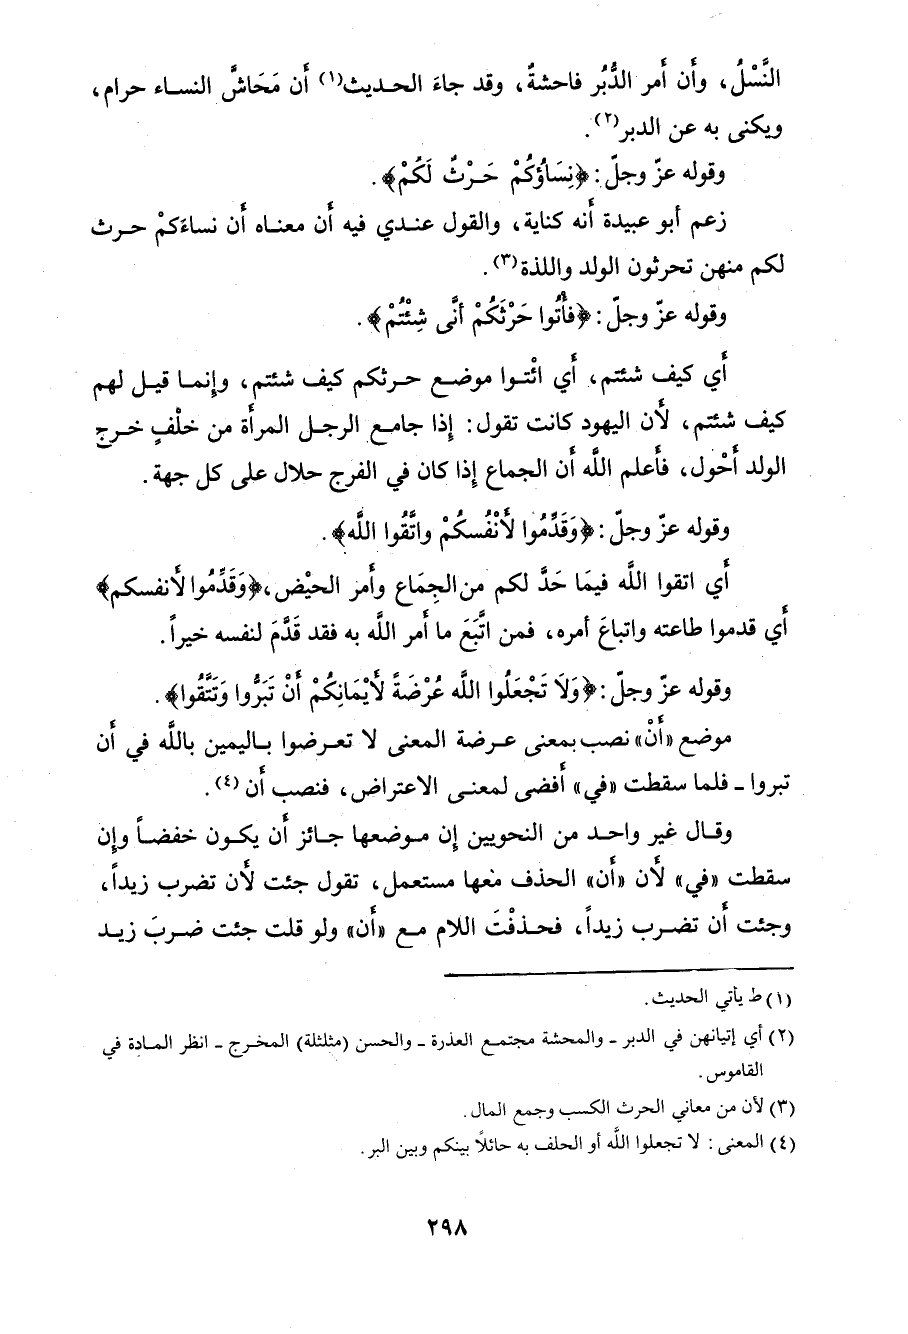 النَّسْلُ، وأَن أَمر الدُّبُر فاحشةٌ، وقد جاءَ الحديث(١) أَن مَحَاشَّ النساء حرام،
ويكنى به عن الدبر(٢).
وقوله عزّ وجلّ: ﴿نِسَاؤُكُمْ حَرْثٌ لَكُمْ﴾.
زعم أبو عبيدة أَنه كناية، والقول عندي فيه أَن معناه أَن نساءَكمْ حرث
لكم منهن تحرثون الولد واللذة(٣).
وقوله عزّ وجلّ: ﴿فَأْتُوا حَرْثَكُمْ أَنَّى شِئْتُمْ﴾.
أَي كيف شئتم، أَي ائْتوا موضع حرثكم كيف شئتم، وإنما قيل لهم
كيف شئتم، لأَن اليهود كانت تقول: إذا جامع الرجل المرأة من خلْفٍ خرج
الولد أَحْول، فأَعلم اللَّه أَن الجماع إذا كان في الفرج حلال على كل جهة.
وقوله عزّ وجلّ: ﴿وَقَدِّمُوا لأَنْفُسكُمْ واتَّقُوا اللَّه﴾.
أَي اتقوا اللَّه فيمَا حَدَّ لكم من الجِمَاع وأَمر الحيْض، ﴿وَقَدِّمُوا لأَنفسكم﴾
أَي قدموا طاعته واتباعَ أمره، فمن اتَّبَعَ ما أَمر اللَّه به فقد قَدَّمَ لنفسه خيراً.
وقوله عزّ وجلّ: ﴿وَلاَ تَجْعَلُوا اللَّه عُرْضَةً لأَيْمَانِكُمْ أَنْ تَبَرُّوا وَتَتَّقُوا﴾.
موضع «أَنْ» نصب بمعنى عرضة المعنى لا تعرضوا باليمين باللَّه في أَن
تبروا - فلما سقطت «في» أَفضى لمعنى الاعتراض، فنصب أَن (٤).
وقال غير واحد من النحويين إن موضعها جائز أَن يكون خفضاً وإن
سقطت «في» لأَن «أَن» الحذف معها مستعمل، تقول جئت لأَن تضرب زيداً،
وجئت أَن تضرب زيداً، فحذفْتَ اللام مع «أَن» ولو قلت جئت ضربَ زيد
(١) ط يأتي الحديث.
(٢) أي إتيانهن في الدبر - والمحشة مجتمع العذرة - والحسن (مثلثلة) المخرج - انظر المادة في
القاموس.
(٣) لأن من معاني الحرث الكسب وجمع المال.
(٤) المعنى: لا تجعلوا اللَّه أو الحلف به حائلاً بينكم وبين البر.
٢٩٨